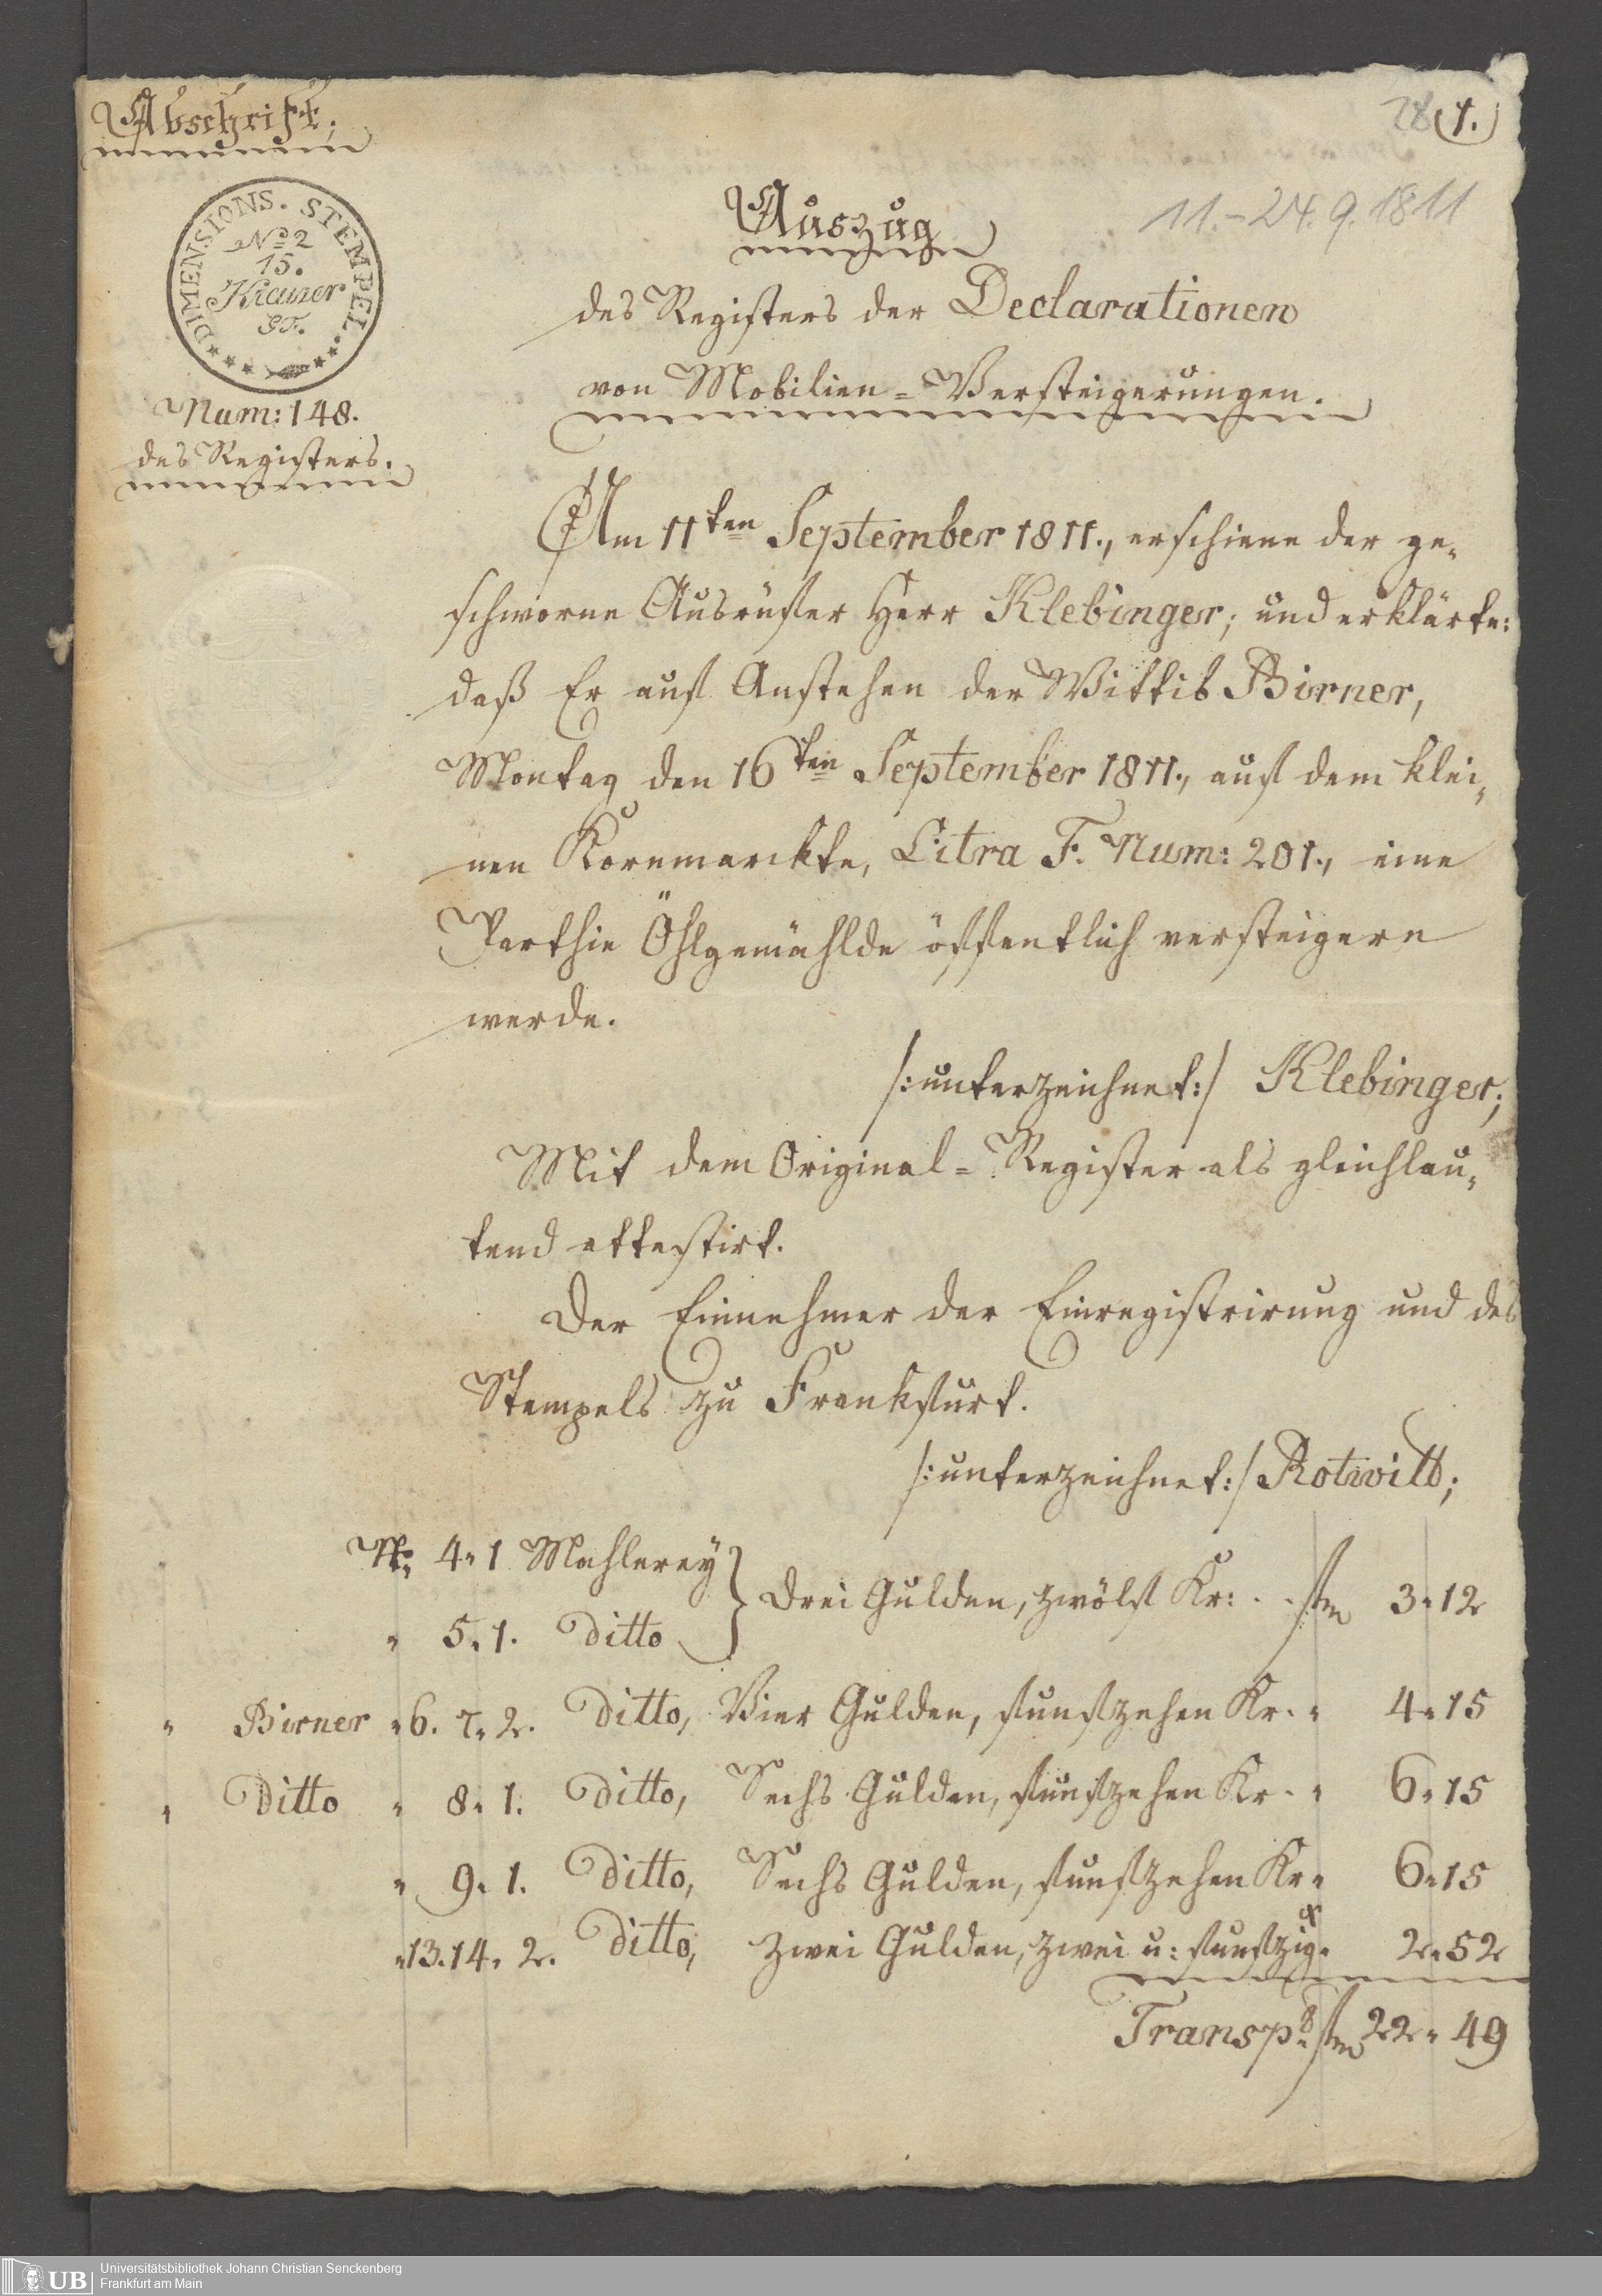 Abschrift;
28 (1.)
11.-24.9.1811
DIMENSIONS. STEMPEL.
No 2
15.
Kreuzer
GF.
Num: 148.
des Registers.
Auszug
des Registers der Declarationen
von Mobilien=Versteigerungen.
Am 11ten September 1811., erschiene der ge„
schworne Ausrüfer Herr Klebinger; und erklärte:
daß Er auf Anstehen der Wittib Birner,
Montag den 16ten September 1811., auf dem klei„
nen Kornmarckte, Litra F. Num: 201., eine
Parthie Öhlgemählde öffentlich versteigern
werde.
/:unterzeichnet:/ Klebinger;
Mit dem Original=Register als gleichlau„
tend attestirt.
Der Einnehmer der Einregistrirung und des
Stempels zu Frankfurt.
/:unterzeichnet:/ Rotwitt;
N: 4„ 1 Mahlerey } Drei Gulden, zwölf Kr: . . fl 3„12
„ 5„ 1. Ditto
„ Birner „ 6. 7„ 2. Ditto, Vier Gulden, funfzehen Kr. „ 4„15
„ Ditto „ 8„ 1. Ditto, Sechs Gulden, funfzehen Kr. „ 6„15
„ 9„ 1. Ditto, Sechs Gulden, funfzehen Kr „ 6„15
„ 13. 14„ 2. Ditto, Zwei Gulden, zwei u: funfzig x „ 2„52
Transpt fl 22„49
UB
Universitätsbibliothek Johann Christian Senckenberg
Frankfurt am Main